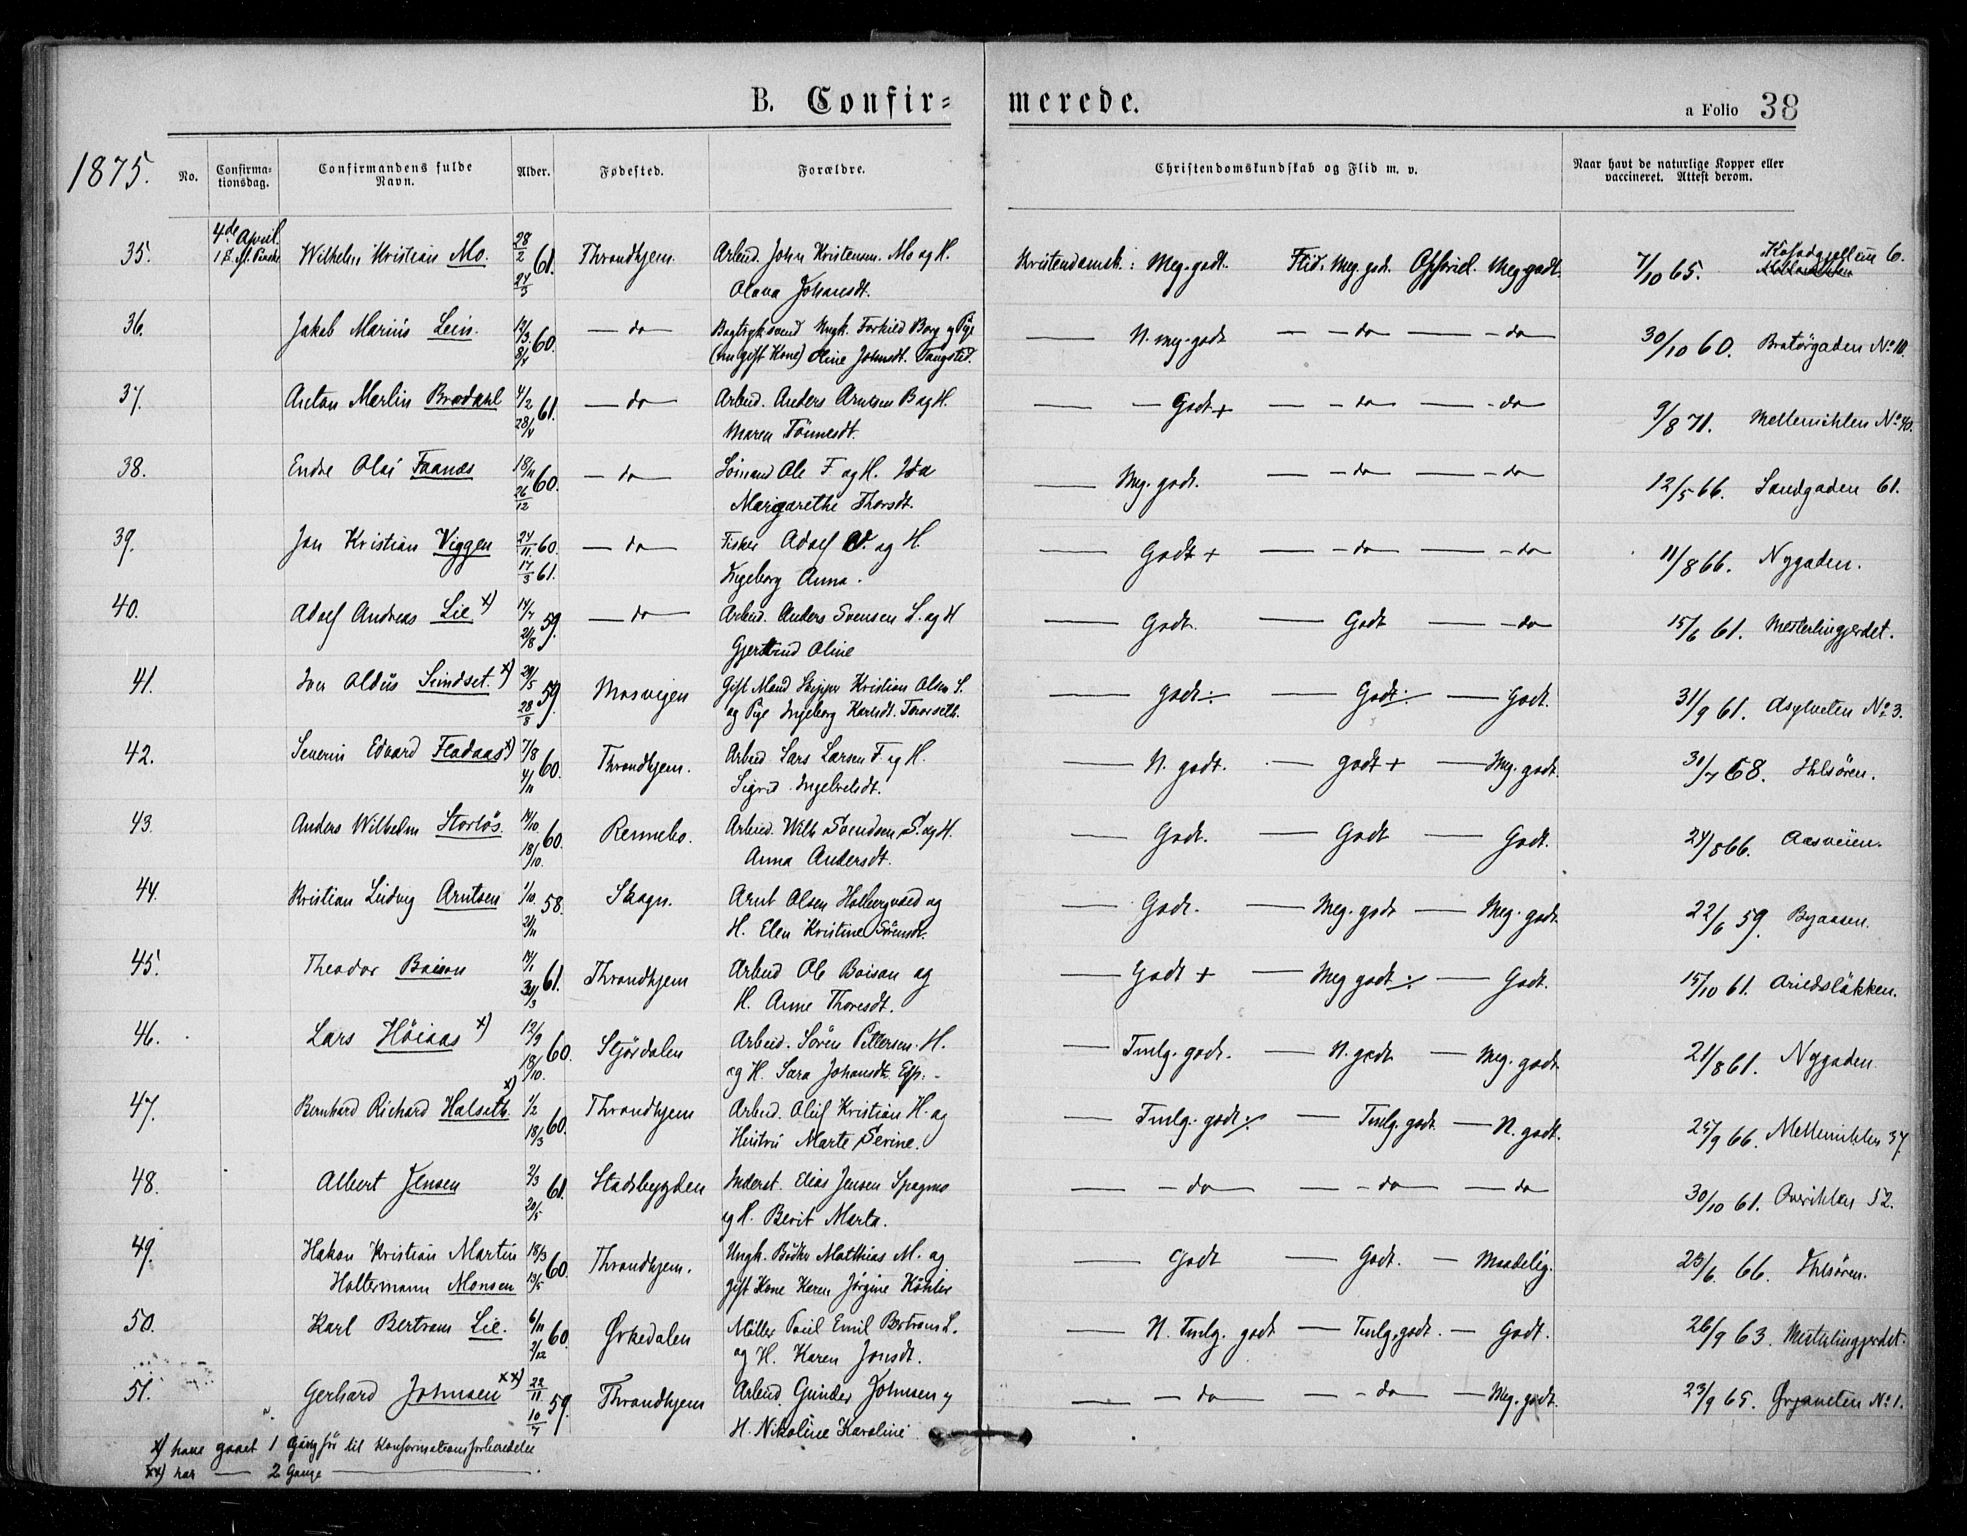 B. Confir= merede.
a Folio 38
1875.
No. Confirma-tionsdag. Confirmandens fulde Navn. Alder. Fødested. Forældre. Christendomskundskab og Flid m. v. Naar havt de naturlige Kopper eller vaccineret. Attest derom.
4de April.
35. Wilhelm Kristian Mo. 28/2 61. Throndhjem. Arbeid. John Kristensen. Mo og H. Kristendomsk: Meg. godt. Flid. Meg. godt. Opførsel. Meg. godt. 7/10 65.
Olava Johansdt.
36. Jakob Marius Lein. 60. — do Ungk. Torkild Borg og Pige — N. meg. godt — — do — — do 30/10 60. Bratørgaden No 10.
(nu gift Kone) Oline Johnsdt.
37. Anton Merlin Brødahl 4/2 61. — do — Arbeid. Anders Arntsen B og H. — — Godt + — — do — — do 9/8 71. Mellemihlen No 40.
28/4 Maren Tönnesdt.
38. Endre Olai Faanæs 18/11 60. — do — Sömand Ole F. og H. Ida — Meg. godt. — — do — — do 12/5 66. Sandgaden 61.
26/12 Margarethe Thorsdt.
39. Jon Kristian Viggen 24/11 60. — do — Fisker Adolf V. og H. — Godt + — — do — — do 11/8 66. Nygaden.
17/3 61. Ingeborg Anna.
40. Adolf Andreas Lie x) 14/7 59. — do — Arbeid. Anders Svensen L. og H — Godt. — Godt — — do 15/6 61. Mesterlingjerdet.
21/8 Gjertrud Oline
41. Iver Aldus Sundset. x) 29/5 59. Mosvigen Gift Mand Skipper Kristian Olsen S. — Godt ./. — Godt ./. — Godt. 31/9 61. Asylveten No 3.
28/8 og Pige Ingeborg Karlsdt.
42. Severin Edvard Fladaas x) 7/8 60. Throndhjem. Arbeid. Lars Larsen F. og H. — N. godt. — godt + — Meg. godt. 31/7 68. Ihlsören.
4/11 Sigrid Ingebrigtsdt.
43. Anders Wilhelm Storløs. 14/10 60. Rennebo. Arbeid. Wilh Svendsen S. og H. — Godt. — Godt — Godt. 24/8 66. Aasveien.
18/10. Anna Andersdt.
44. Kristian Ludvig Arntsen 1/10. 58. Skogn. Arnt Olsen Holbergvald og — Godt. — Meg. godt — Meg. godt. 22/6 59. Byaasen.
21/11 H. Elen Kristine Sörensdt.
45. Theodor Boison 14/1 61. Throndhjem Arbeid Ole Boison og — Godt + — Meg godt ./. — Godt. 15/10 61. Arildsløkken.
31/3 H. Anne Thoresdt.
46. Lars Höiaas x) 12/9 60. Stjørdalen Arbeid. Søren Pettersen H. — Tmlg. godt. — N. godt — Meg. godt. 21/8 61. Nygaden.
18/10. og H. Sara Johansdt.
47. Bernhard Richard Halseth x) 1/2 60. Throndhjem Arbeid. Oluf Kristian H. og — Tmlg. godt ./. — Tmlg. godt — N. godt. 25/9 66. Mellemihlen 37.
18/3 Hustru Marte Serine.
48. Albert Jensen 2/3 61. Stadsbygden Inderst. Elias Jensen — — do — — do — do 30/10 61. Øverihlen 52.
20/5 og H. Berit Marta.
49. Hakon Kristian Martin 18/3 60. Throndhjem. Ungk. Bödker Mathias M. og — Godt — Godt. — Maadelig. 23/6 66. Ihlsören.
Holtermann Monsen 13/5 gift Kone Karen Jørgine Köhler
50. Karl Bertram Lie. 6/11 60. Ørkedalen Möller Paul Emil Bertram L. — N. Tmlg. godt — Tmlg. godt. — Godt. 26/9 63. Mesterlingjerdet.
2/12 og H. Karen Jonsdt.
51. Gerhard Johnsen xx) 22/11 59. Throndhjem Arbeid. Gunder Johnsen og — — do — — do — Meg. godt. 23/9 65. Ørjaveten No 1.
H. Nikoline Karoline
x) have gaaet 1 Gang før til Konfirmationsforberedelse
xx) har — 2 Gange —